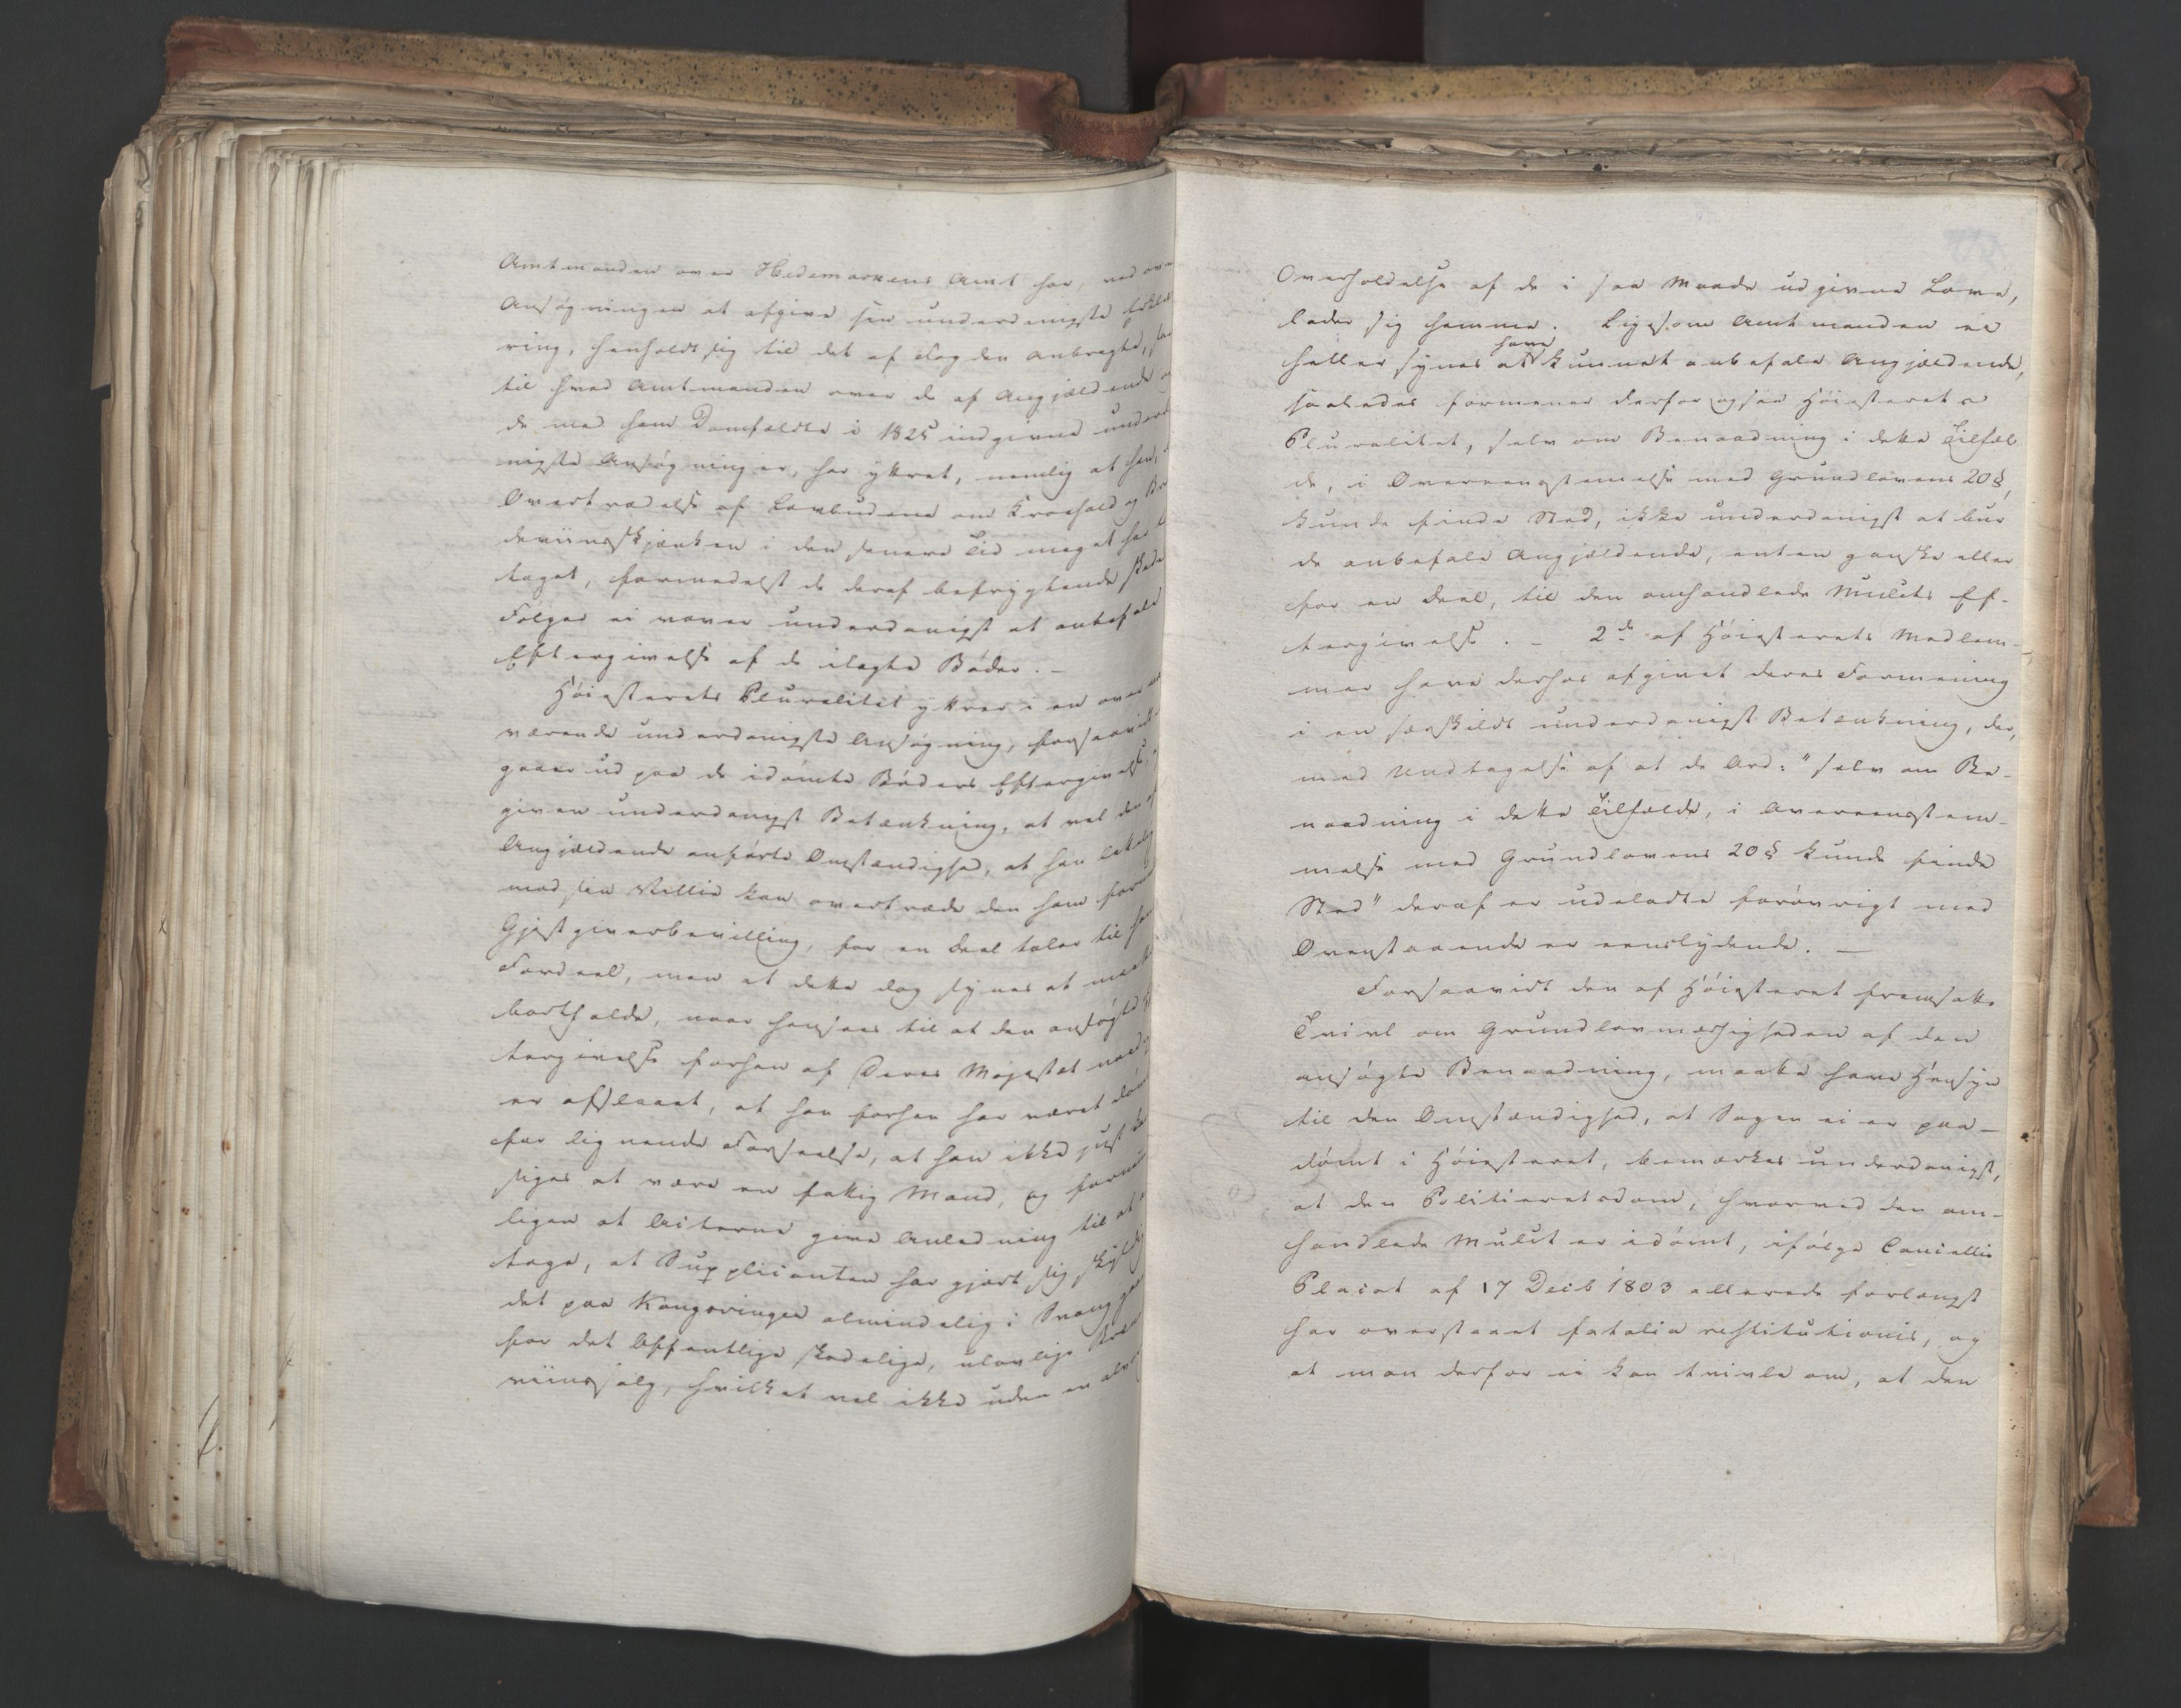 Amtmanden over Hedemarkens Amt har, ved over
Ansøgningen at afgive sin underdanigste Erklæ
ring, henholdt sig til det af Fogden anbragte, sa
til hvad Amtmanden over de af Angjældende og
de med ham Domfældte i 1825 indgivne underd
nigste Ansøgninger, har yttret, nemlig at han,
Overtrædelse af Lovbudene om Kroehold og Br
deviinsskjænken i den senere Tid meget har
taget, formedelst de deraf befrygtende skade
Følger ei vover underdanigst at anbefale
Eftergivelse af de ilagte Bøder. –
Høiesterets Pluralitet yttrer i en over
værende underdanigste Ansøgning, forsaavidt
gaaer ud paa de idømte Bøders Eftergivelse,
given underdanigst Betænkning, at vel den af
Angjældende anførte Omstændighed, at han
mod sin Villie kan overtræde den ham
Gjestgiverbevilling, for en Deel taler til hans
Fordeel, men at dette dog synes at maatte
bortfalde, naar hensees til at den ansøgte Ef
tergivelse forhen af Deres Majestæt naad
er afslaaet, at han forhen har været dømt
for lignende Forseelse, at han ikke just kan
siges at være en fattig Mand, og
ligen at Acterne give Anledning til at an
tage, at Supplicanten har gjort sig skyldig
det paa Kongsvinger almindelig i Svang gaa
for det Offentlige skadelige, ulovlige
viinssalg, hvilket vel ikke uden en alv
Overholdelse af de i saa Maade udgivne Love,
lader sig hemme. Ligesom Amtmanden ei
heller synes at have kunnet anbefale Angjældende,
saaledes formener derfor ogsaa Høiesterets
Pluralitet, selv om Benaadning i dette Tilfæl
de, i Overeensstemmelse med Grundlovens 20 §,
kunde finde Sted, ikke underdanigst at bur
de anbefale Angjældende, enten ganske eller
for en Deel, til den omhandlede Mulcts Ef-
tergivelse. – 2de af Høiesterets Medlem-
mer have derhos afgivet deres Formening
i en særskildt underdanigst Betænkning, der,
med Undtagelse af at de Ord: "selv om Be-
naadning i dette Tilfælde, i Overeensstem-
melse med Grundlovens 20 § kunde finde
Sted" deraf er udeladte forøvrigt med
Ovenstaaende er eenslydende. –
Forsaavidt den af Høiesteret fremsatte
Tvivl om Grundlovmæssigheden af den
ansøgte Benaadning, maatte have Hensyn
til den Omstændighed, at Sagen ei er paa-
dømt i Høiesteret, bemærkes underdanigst,
at den Politieretsdom, hvorved den om-
handlede Mulct er idømt, ifølge Cancellie
Placat af 17 Decb 1803 allerede forlængst
har overstaaet fatalia restitutionis, og
at man derfor ei kan tvivle om, at den